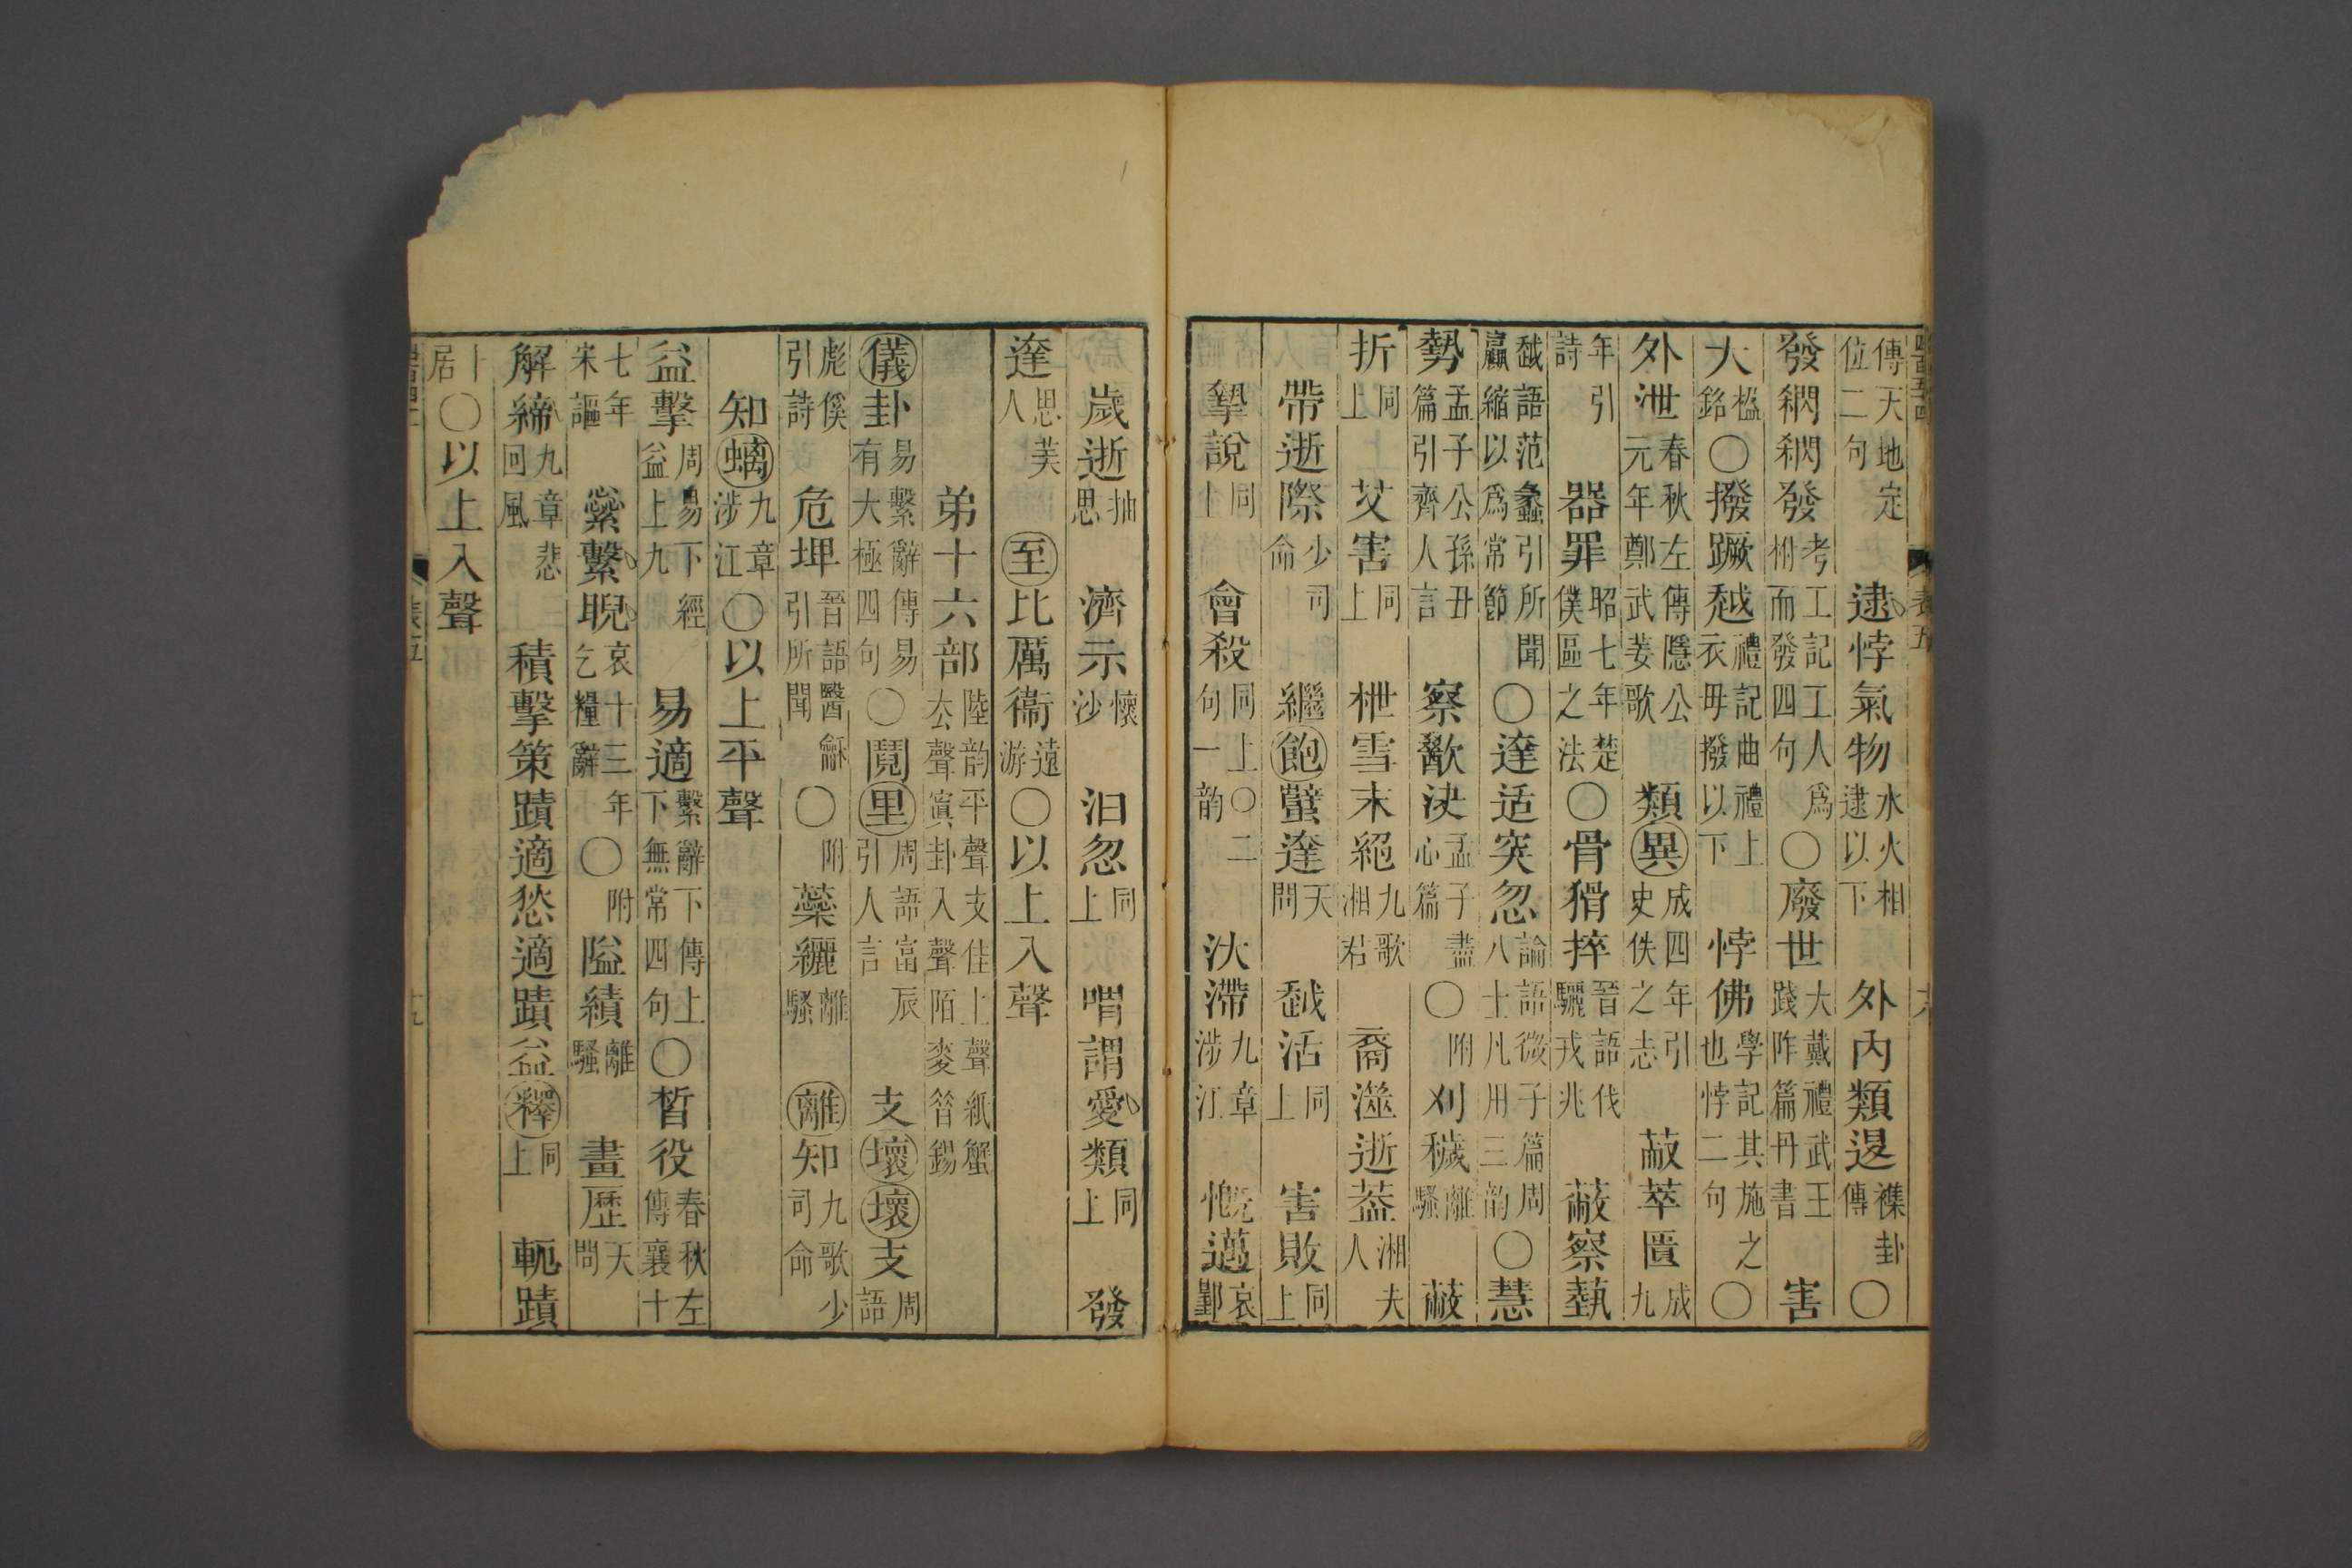 傳天地定位二句　逮悖氣物水火相逮以下　外內類退襍卦傳〇
發𥿊𥿊發考工記工人爲柎而發四句〇廢世大戴禮武王踐阼篇丹書　害
大楹銘〇撥蹶越禮記曲禮上衣毋撥以下　悖佛學記其施之也悖二句〇
外泄春秋左傳隱公元年鄭武姜歌　類異成四年引史佚之志　蔽萃匱成九
年引詩　器罪昭七年楚僕區之法〇骨猾捽晉語伐驪戎兆　蔽察蓺
越語范蠡引所聞贏縮以爲常節〇達适突忽論語微子篇周八士凡用三韵〇慧
勢孟子公孫丑篇引齊人言　察歠決孟子盡心篇〇附　刈穢離騷　蔽
折同上　艾害同上　枻雪末絕九歌湘君　裔澨逝葢湘夫人
帶逝際少司命　繼飽蠥達天問　越活同上　害敗同上
摯說同上　會殺同上〇二句一韵　汏滯九章涉江　慨邁哀郢
歲逝抽思　濟示懷沙　汨忽同上　喟謂愛類同上　發
達思美人　至比厲衞遠游〇以上入聲
弟十六部陸韵平聲支佳上聲紙蟹去聲寘卦入聲陌麥昔錫
儀卦易繫辭傳易有大極四句〇鬩里周語富辰引人言　支壞壞支周語
彪傒引詩　危埤晉語醫龢引所聞〇附　蘂纚離騷　離知九歌少司命
知螭九章涉江〇以上平聲
益擊周易下經益上九　易適繫辭下傳上下無常四句〇晳役春秋左傳襄十
七年宋謳　繠繫睨哀十三年乞糧辭〇附　隘績離騷　畫歷天問
解締九章悲回風　積擊策蹟適愁適蹟益釋同上　軛蹟
卜居〇以上入聲